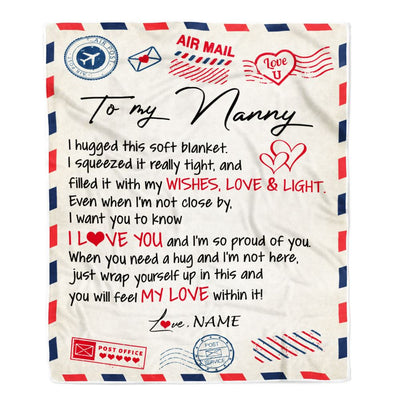 AIR POST
AIR MAIL
Love
U
To my Nanny
I hugged this soft blanket.
I squeezed it really tight, and
filled it with my WISHES, LOVE & LIGHT.
Even when I'm not close by,
I want you to know
I L❤VE YOU and I'm so proud of you.
When you need a hug and I'm not here,
just wrap yourself up in this and
you will feel MY LOVE within it!
Love, NAME
POST OFFICE
POST
SERVICE